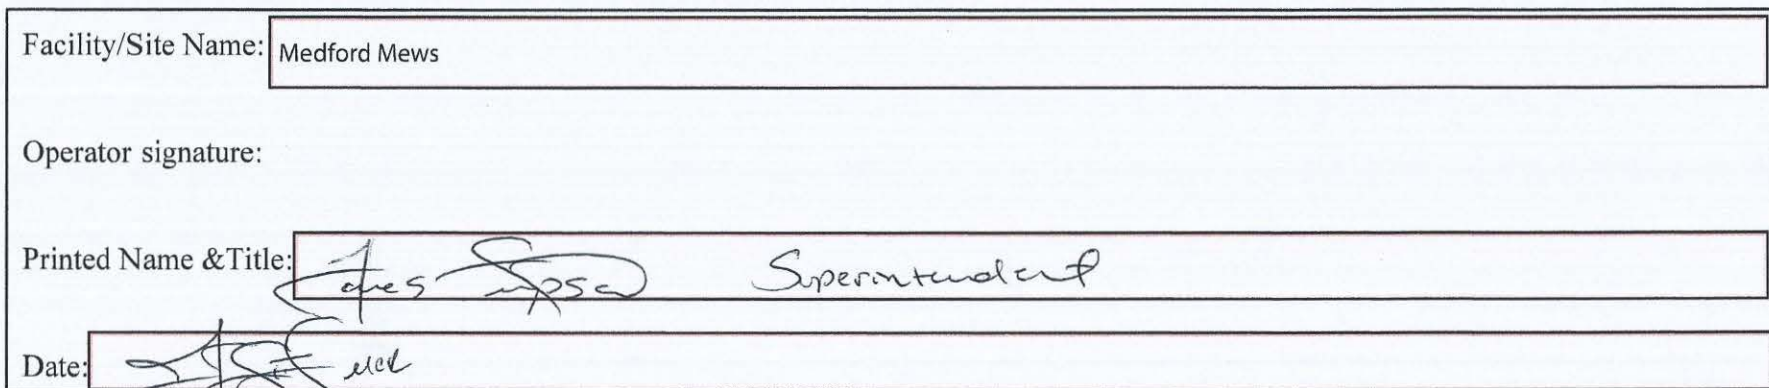 Facility/Site Name: Medford Mews
Operator signature:
Printed Name &Title: James Simpson Superintendent
Date: